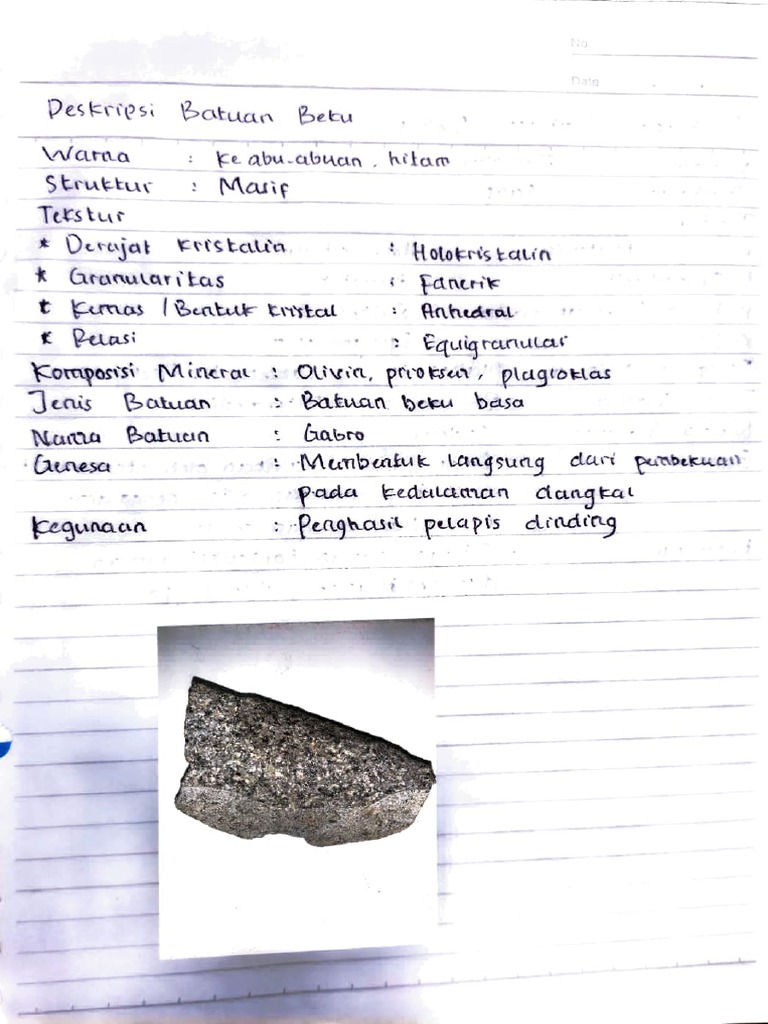 No
Date
Deskripsi Batuan Beku
Warna : Keabu-abuan, hitam
Struktur : Masif
Tekstur
* Derajat kristalin : Holokristalin
* Granularitas : Fanerik
* Kemas / Bentuk kristal : Anhedral
* Relasi : Equigranular
Komposisi Mineral : Olivin, piroksen, plagioklas
Jenis Batuan : Batuan beku basa
Nama Batuan : Gabro
Genesa : Membentuk langsung dari pembekuan
pada kedalaman dangkal
Kegunaan : Penghasil pelapis dinding